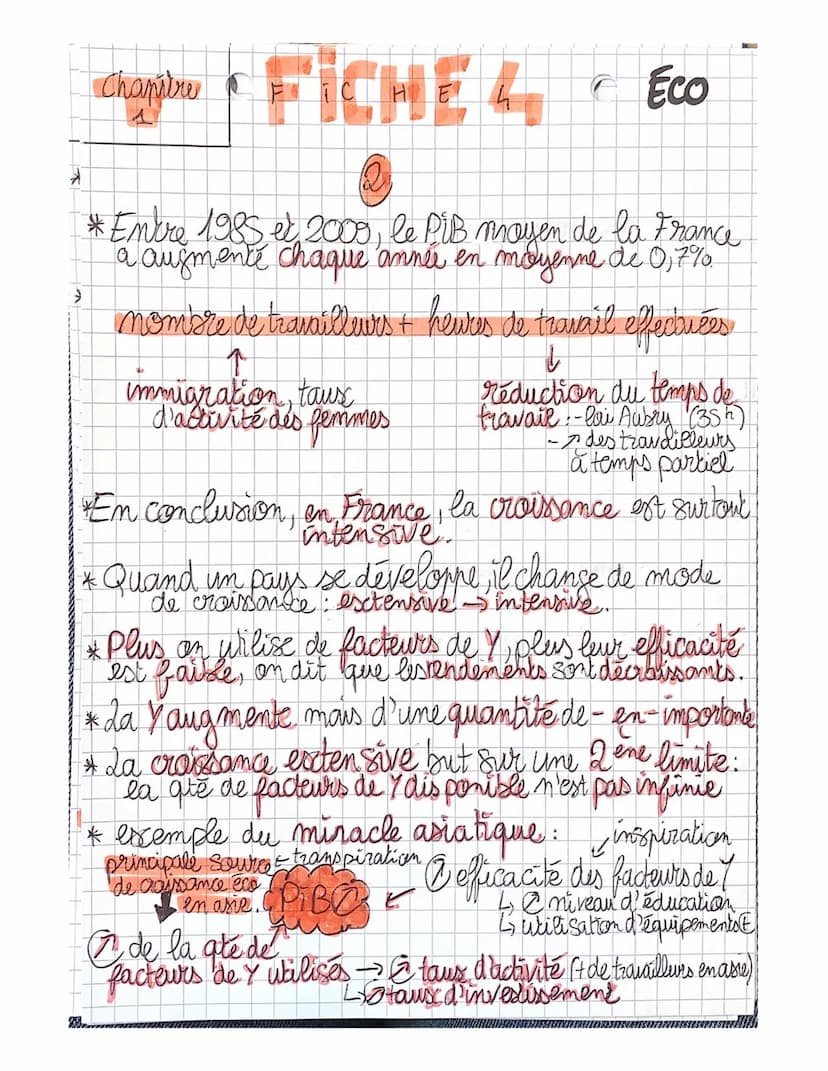 Chapitre
1
FiCHE 4
F i C H E 4
Eco
2
* Entre 1985 et 2000, le PiB moyen de la France
a augmenté chaque année en moyenne de 0,7%.
nombre de travailleurs + heures de travail effectuées
↑ ↓
immigration, taux
d'activité des femmes
réduction du temps de
travail : - loi Aubry (35h)
- ↗ des travailleurs
à temps partiel
*En conclusion, en France, la croissance est surtout
intensive.
* Quand un pays se développe, il change de mode
de croissance : extensive → intensive.
* Plus on utilise de facteurs de Y, plus leur efficacité
est faible, on dit que les rendements sont décroissants.
* La Y augmente mais d'une quantité de - en - importante
* La croissance extensive but sur une 2ène limite :
la qté de facteurs de Y disponible n'est pas infinie
* exemple du miracle asiatique :
↙ inspiration
principale source ← transpiration
de croissance éco
en asie.
PiB ↗
↙ ↗ efficacité des facteurs de Y
↳ ↗ niveau d'éducation
↳ utilisation d'équipements
↗ de la qté de
facteurs de Y utilisés → ↗ taux d'activité (+ de travailleurs en asie)
↳ ↗ taux d'investissement